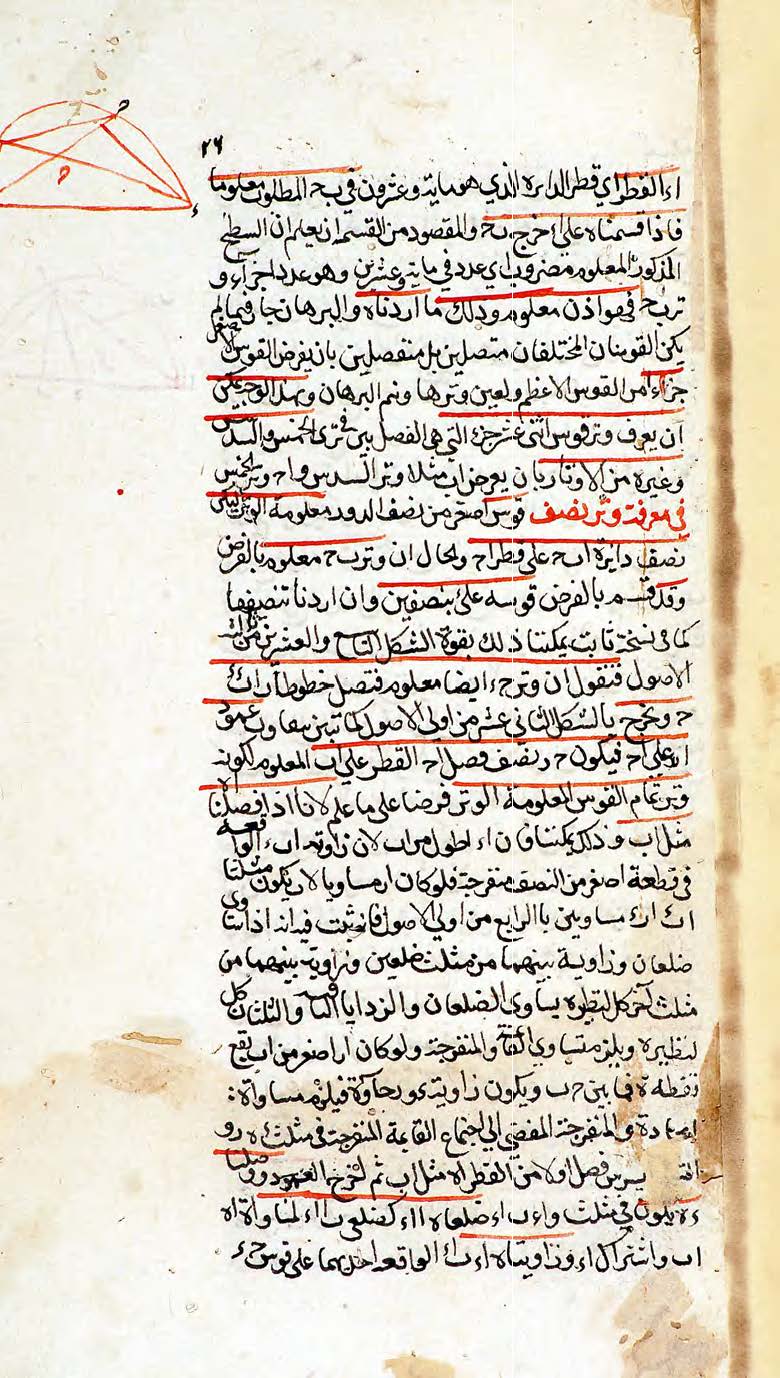 ٢٦
اء القطر اي قطر الدايرة الذي هو ماية وعشرون في ب ح المطلوب معلوما
فاذا قسمناه علي اء خرج ب ح والمقصود من القسمة ان يعلم ان السطح
المذكور المعلوم مضروب اي عدد في ماية وعشرين وهو عدد اجزاء و
تر ب ح فهو اذن معلوم وذلك ما اردناه والبرهان جار فيما لم
يكن القوسان المختلفان متصلين بل منفصلين بان يفرض القوس الاصغر
جزاء من القوس الاعظم ولعين وترها وتم البرهان وبهذا الوجه يمكن
ان يعرف وتر قوس اثني عشر جزء التي هي الفصل بين قوسي الخمس والسدس
وغيره من الاوتار بان يفرض اب مثلا وتر السدس و ا ح وتر الخمس
في معرفة وتر نصف قوس اصغر من نصف الدور معلومة الوتر ليكن
نصف دايرة اب ح علي قطر ا ح والحال ان وتر ب ح معلوم بالفرض
وقد قسم بالفرض قوسه علي ء بنصفين وان اردنا تنصيفها
كما في نسخة ثابت يمكننا ذلك بقوة الشكل التاسع والعشرين من ثالثة
الاصول فنقول ان وتر ح ء ايضا معلوم فنصل خطوط اب اء ب ء
ء ح ونخرج بالشكل الثاني عشر من اولي الاصول كما تبين عمود
ء ر علي ا ح فيكون ح ر نصف فصل ا ح القطر علي اب المعلوم لكونه
وتر تمام القوس المعلومة الوتر فرضا علي ما علم لانا اذا فصلنا ا ه
مثل اب وذلك يمكننا فان اء اطول من اب لان زاوية اب ء الواقعة
في قطعة اصغر من النصف منفرجة فلو كان ار مساويا لاب يكون مثلثا
اب ء ار ء مساويين بالرابع من اولي الاصول فانه ثبت فيه انه اذا ساوي
ضلعان وزاوية بينهما من مثلث ضلعين وزاوية بينهما من
مثلث آخر كل لنظيره يساوي الضلعان والزوايا الباقية والمثلثان كل
لنظيره ويلزم تساوي القايمة والمنفرجة ولو كان ار اصغر من اب يقع
نقطة ه فيما بين ح ر ويكون زاوية
والمنفرجة المفضي الي اجتماع القايمة المنفرجة في مثلث ء ه ر و
فصل اولا من القطر ا ه مثل اب ثم لنخرج العمود ووصلنا
ء ه يكون في مثلث ه اء ب اء ضلعا ه ا اء كضلعي ب ا اء لمساواة ا ه
اب واشتراك اء وزاويتا ه اء ب اء الواقعة احديهما علي قوس ح ء